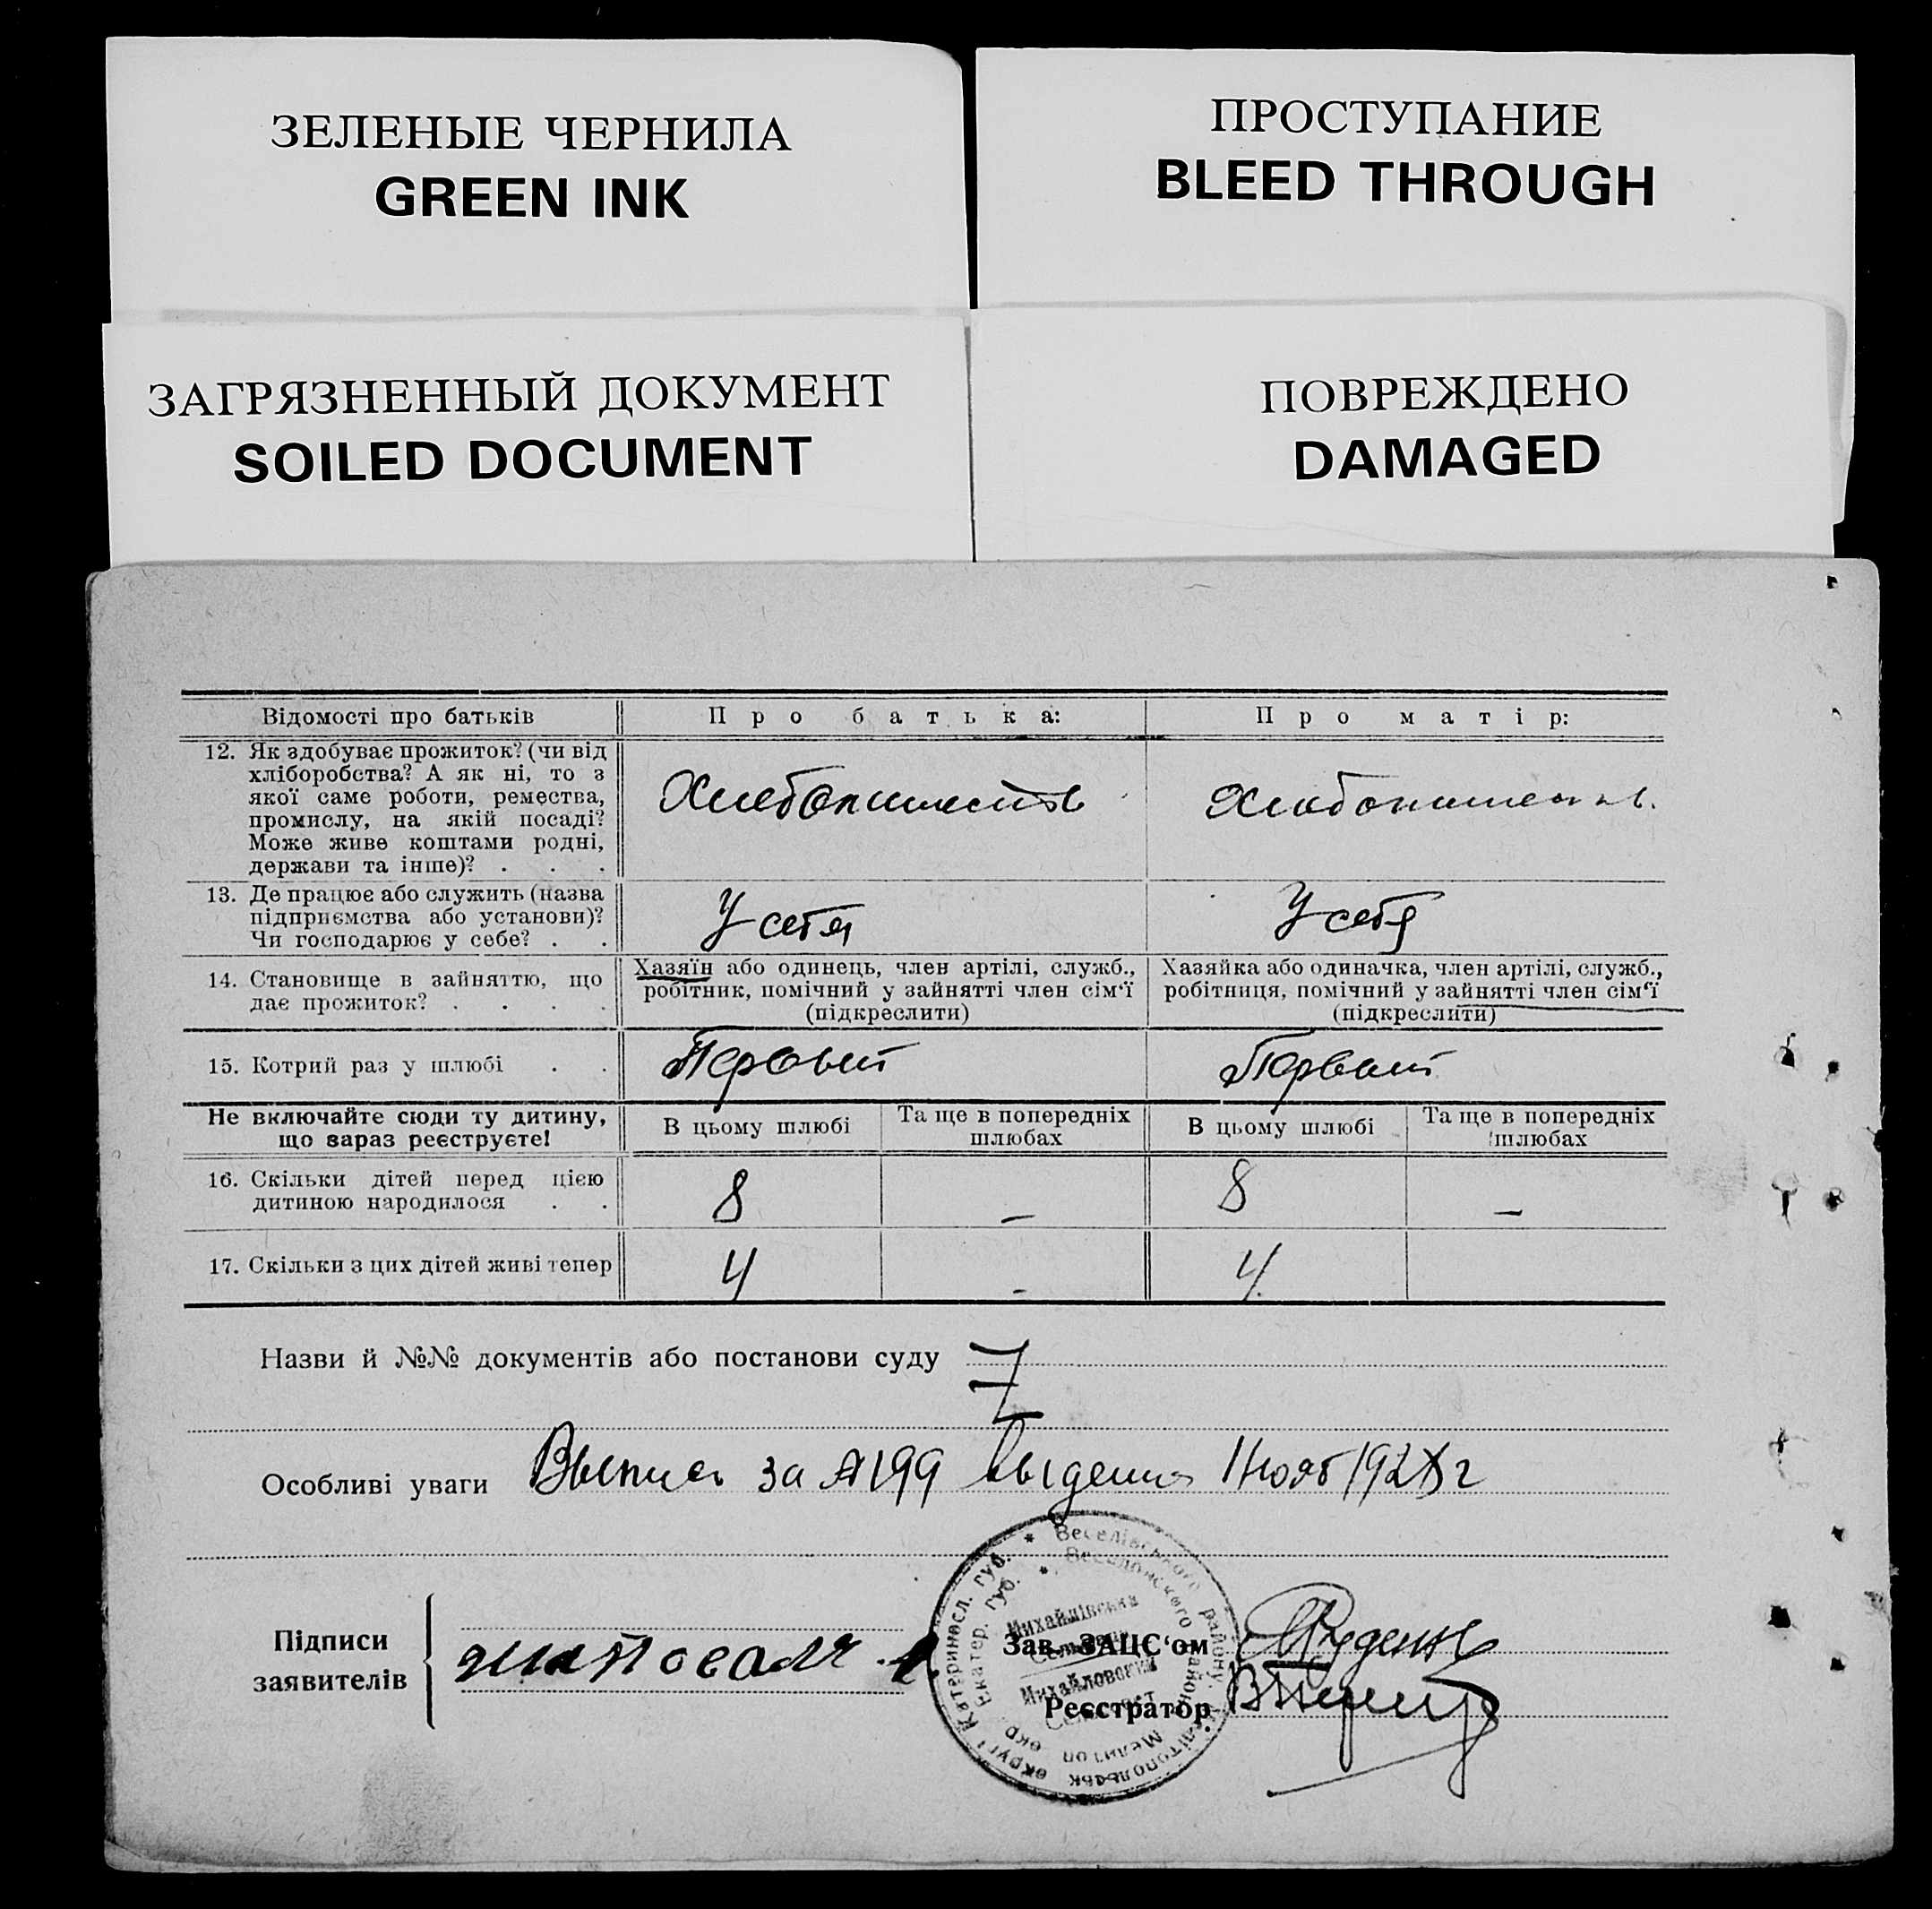 ЗЕЛЕНЫЕ ЧЕРНИЛА
GREEN INK
ПРОСТУПАНИЕ
BLEED THROUGH
ЗАГРЯЗНЕННЫЙ ДОКУМЕНТ
SOILED DOCUMENT
ПОВРЕЖДЕНО
DAMAGED
Відомості про батьків Про батька: Про матір:
12. Як здобуває прожиток? (чи від
хліборобства? А як ні, то з
якої саме роботи, ремества,
промислу, на якій посаді?
Може живе коштами родні,
держави та інше)? . . .
Хлебопашеств
Хлебопашеств.
13. Де працює або служить (назва
підприємства або установи)?
Чи господарює у себе? . .
У себя
У себя
14. Становище в зайняттю, що
дає прожиток? . . . .
Хазяїн або одинець, член артілі, служб.,
робітник, помічний у зайнятті член сім'ї
(підкреслити)
Хазяйка або одиначка, член артілі, служб.,
робітниця, помічний у зайнятті член сім'ї
(підкреслити)
15. Котрий раз у шлюбі . . Первый Первый
Не включайте сюди ту дитину,
що зараз реєструєте!
В цьому шлюбі
Та ще в попередніх
шлюбах
В цьому шлюбі
Та ще в попередніх
шлюбах
16. Скільки дітей перед цією
дитиною народилося . .
8 — 8 —
17. Скільки з цих дітей живі тепер 4 - 4
Назви й №№ документів або постанови суду
Особливі уваги Выпись за №199 выдена
Підписи
заявителів
Зав. ЗАЦС'ом
Реєстратор
Веселівського району Мелітопольськ округи Катериносл. губ.
Веселовского район Мелитоп окр Екатер. губ.
Михайлівська
Сельрада
Михайловский
Сельсовет